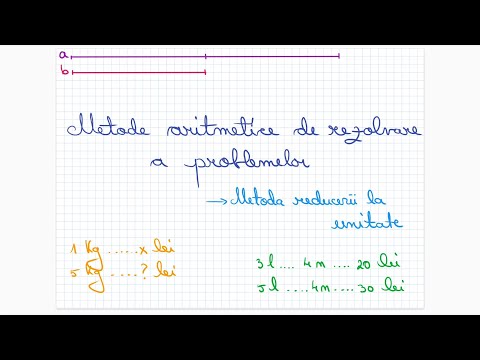 a
b
Metode aritmetice de rezolvare
a problemelor
→ Metoda reducerii la
unitate
1 Kg ..... x lei
5 Kg .... ? lei
3 l .... 4 m .... 20 lei
5 l .... 4 m .... 30 lei